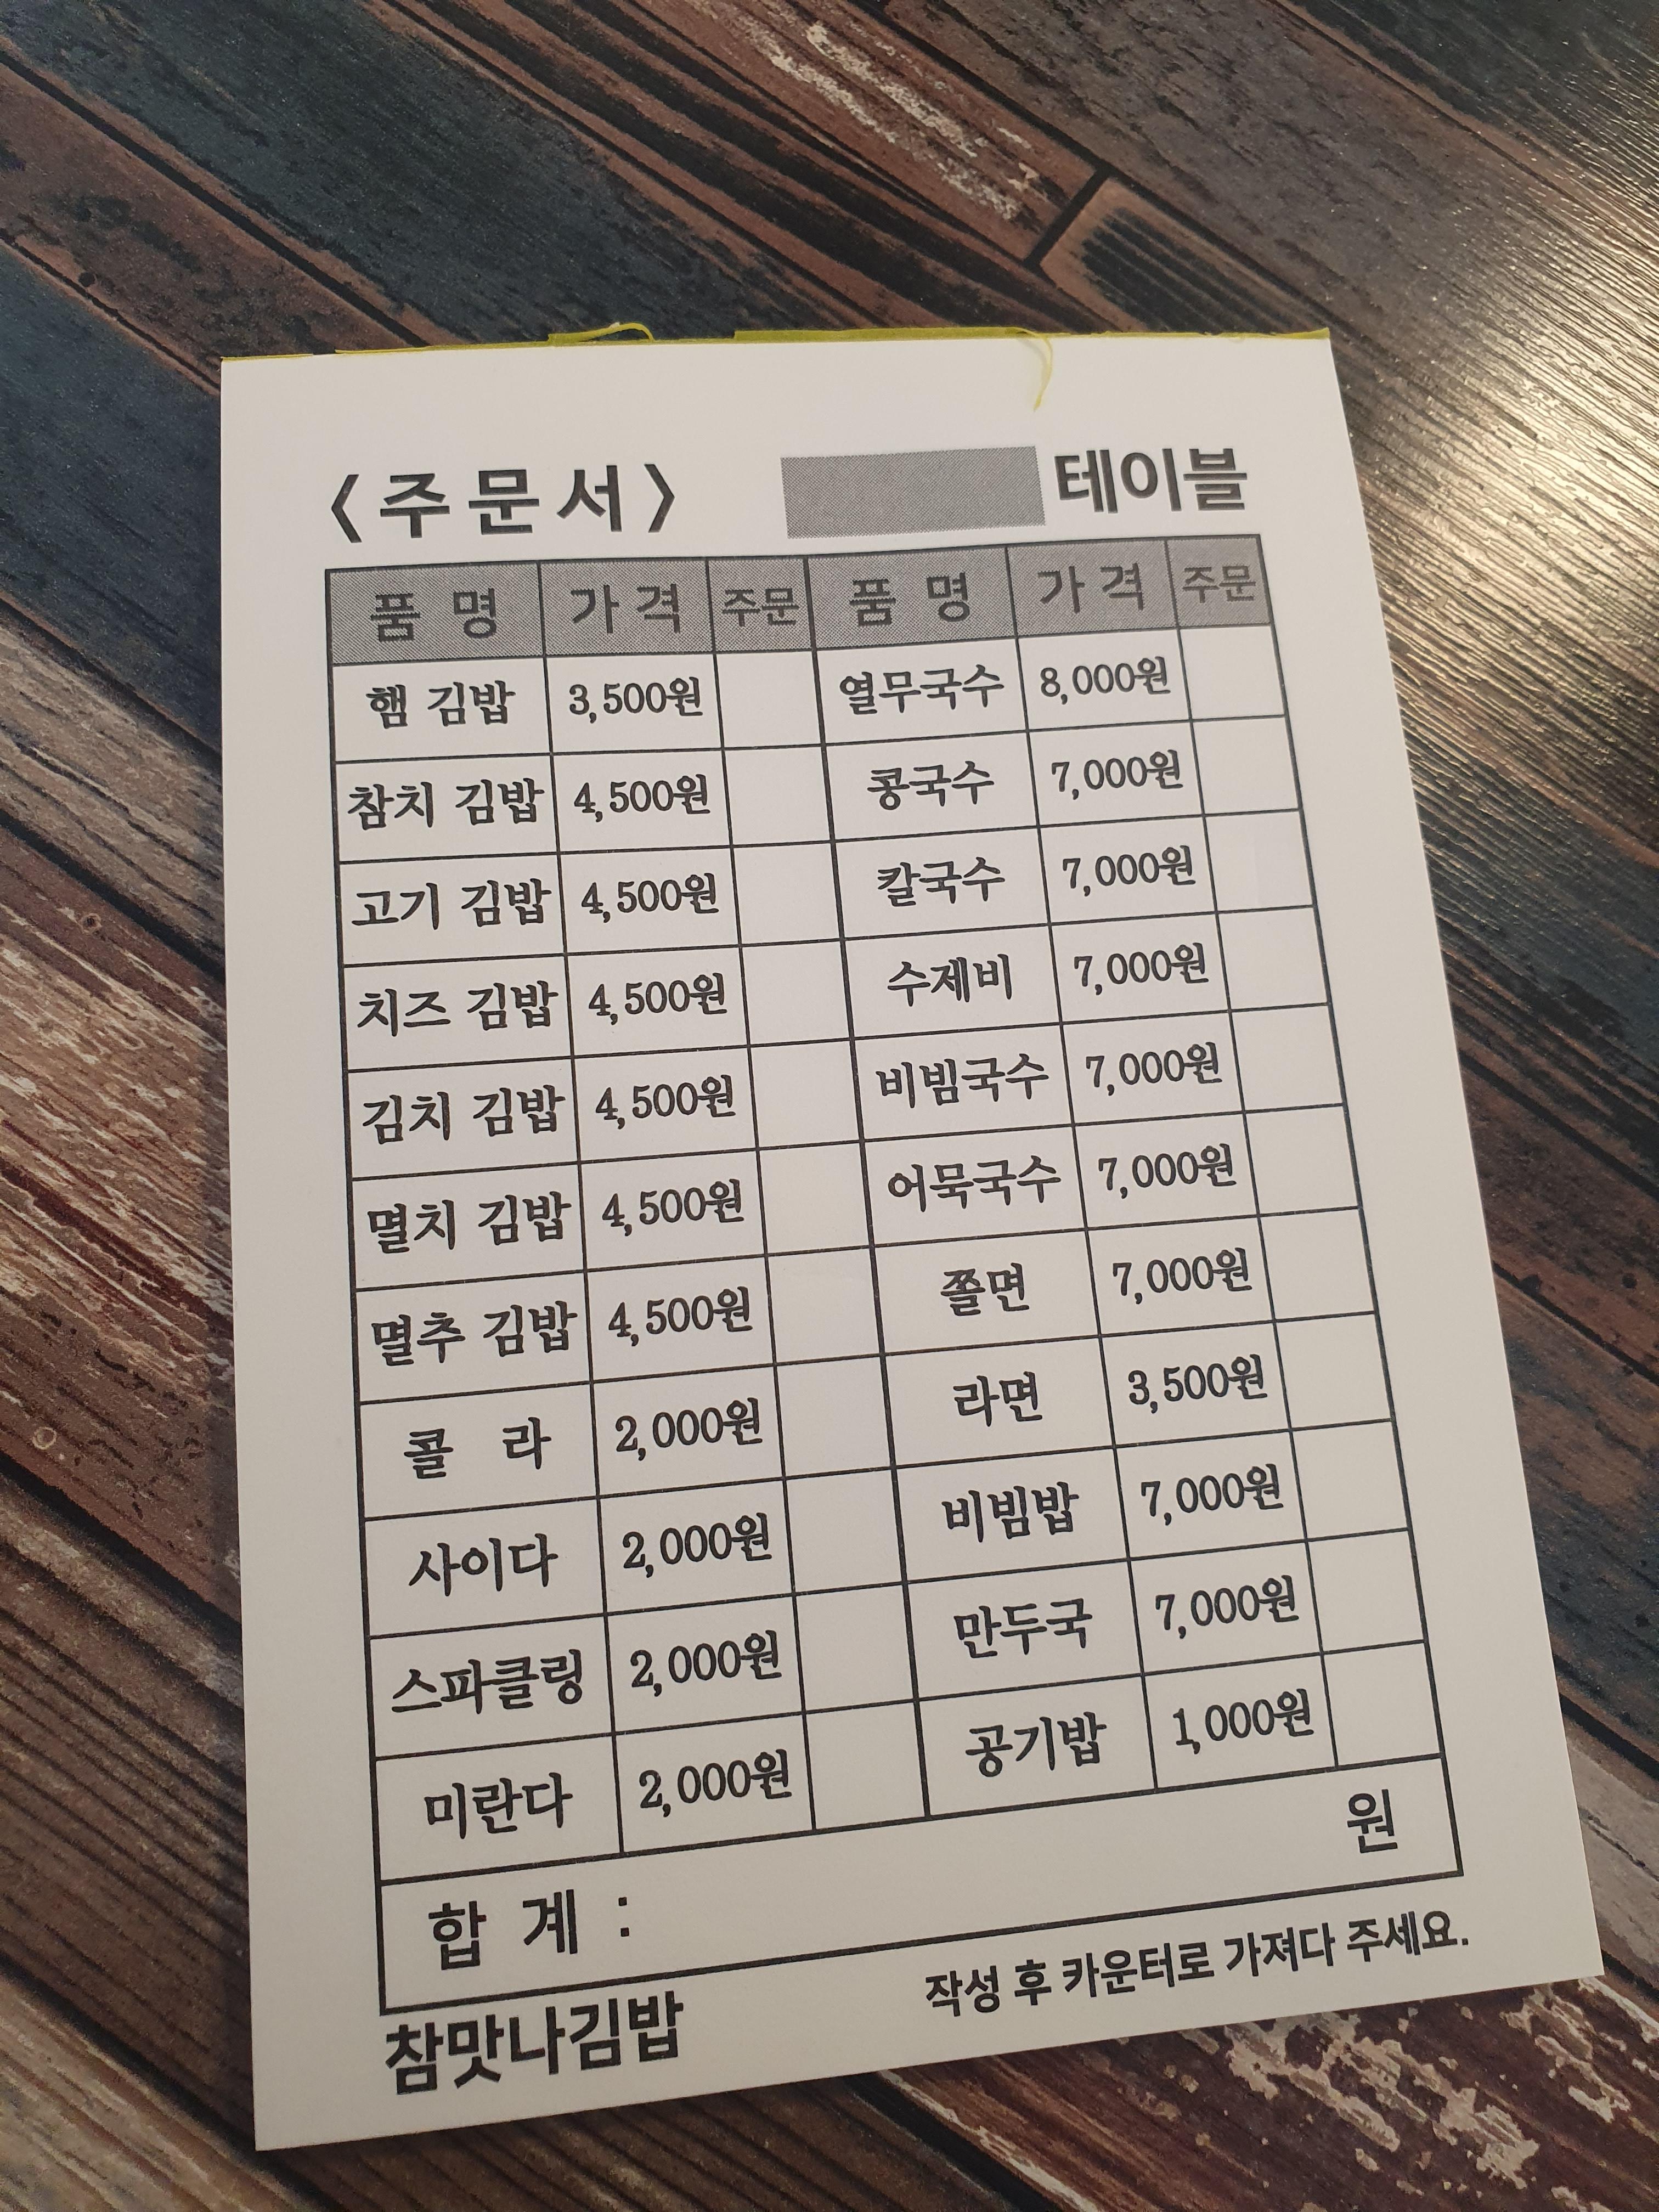 〈주문서〉 테이블
품 명 가 격 주문 품 명 가 격 주문
햄 김밥 3,500원 열무국수 8,000원
참치 김밥 4,500원 콩국수 7,000원
고기 김밥 4,500원 칼국수 7,000원
치즈 김밥 4,500원 수제비 7,000원
김치 김밥 4,500원 비빔국수 7,000원
멸치 김밥 4,500원 어묵국수 7,000원
멸추 김밥 4,500원 쫄면 7,000원
콜 라 2,000원 라면 3,500원
사이다 2,000원 비빔밥 7,000원
스파클링 2,000원 만두국 7,000원
미란다 2,000원 공기밥 1,000원
합 계 : 원
참맛나김밥 작성 후 카운터로 가져다 주세요.